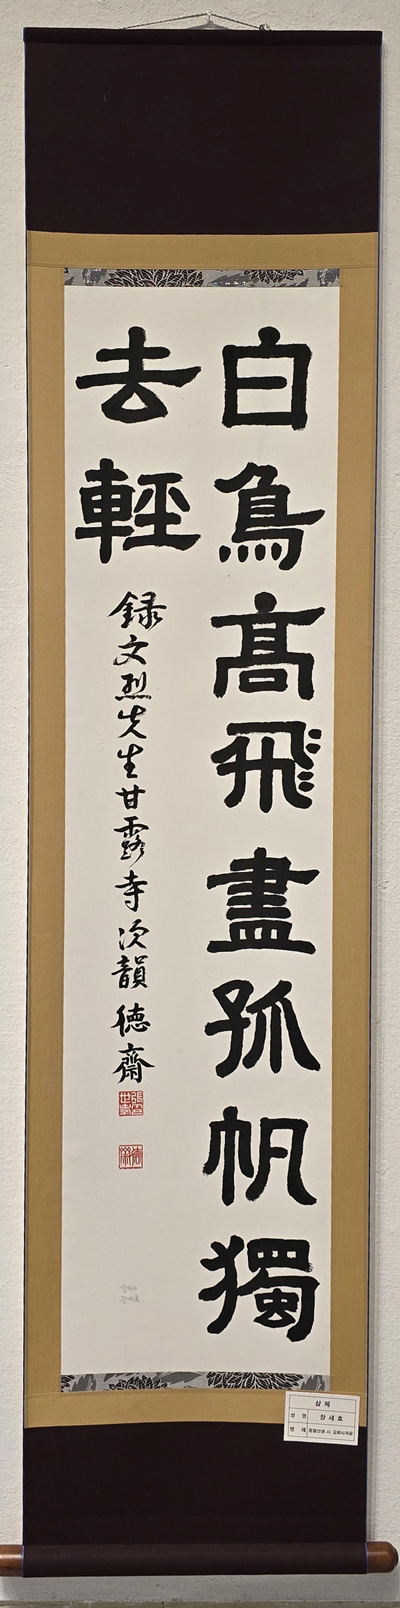 白鳥高飛盡孤帆獨
去輕
録文烈先生甘露寺次韻 德齋
삼체
성 명 장세효
명 제 문열선생 시 감로사차운